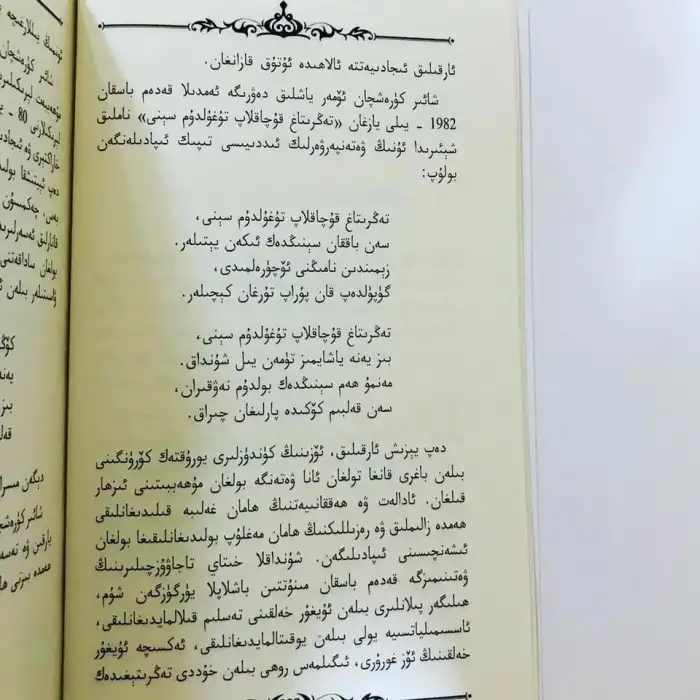 ئارقىلىق ئىجادىيەتتە ئالاھىدە ئۇتۇق قازانغان.
شائىر كۈرەشچان ئۆمەر ياشلىق دەۋرىگە ئەمدىلا قەدەم باسقان
1982 - يىلى يازغان «تەڭرىتاغ قۇچاقلاپ تۇغۇلدۇم سېنى» ناملىق
شېئىرىدا ئۇنىڭ ۋەتەنپەرۋەرلىك ئىددىيىسى تىپىك ئىپادىلەنگەن
بولۇپ:
تەڭرىتاغ قۇچاقلاپ تۇغۇلدۇم سېنى،
سەن باققان سېنىڭدەك ئىكەن يېتىلەر.
زېمىندىن نامىڭنى ئۆچۈرەلمىدى،
گۈپۈلدەپ قان پۇراپ تۇرغان كېچىلەر.
تەڭرىتاغ قۇچاقلاپ تۇغۇلدۇم سېنى،
بىز يەنە ياشايمىز تۈمەن يىل شۇنداق.
مەنمۇ ھەم سېنىڭدەك بولدۇم نەۋقىران،
سەن قەلبىم كۆكىدە پارلىغان چىراق.
دەپ يېزىش ئارقىلىق، ئۆزىنىڭ كۈندۈزلىرى يورۇقتەك كۆرۈنگىنى
بىلەن باغرى قانغا تولغان ئانا ۋەتەنگە بولغان مۇھەببىتىنى ئىزھار
قىلغان. ئادالەت ۋە ھەققانىيەتنىڭ ھامان غەلىبە قىلىدىغانلىقى
ھەمدە زالىملىق ۋە رەزىللىكنىڭ ھامان مەغلۇپ بولىدىغانلىقىغا بولغان
ئىشەنچىسىنى ئىپادىلىگەن. شۇنداقلا خىتاي تاجاۋۇزچىلىرىنىڭ
ۋەتىنىمىزگە قەدەم باسقان مىنۇتتىن باشلاپلا يۈرگۈزگەن شۇم،
ھىلىگەر پىلانلىرى بىلەن ئۇيغۇر خەلقىنى تەسلىم قىلالمايدىغانلىقى،
ئاسسىمىلياتسىيە يولى بىلەن يوقىتالمايدىغانلىقى، ئەكسىچە ئۇيغۇر
خەلقىنىڭ ئۆز غۇرۇرى، ئىگىلمەس روھى بىلەن خۇددى تەڭرىتېغىدەك